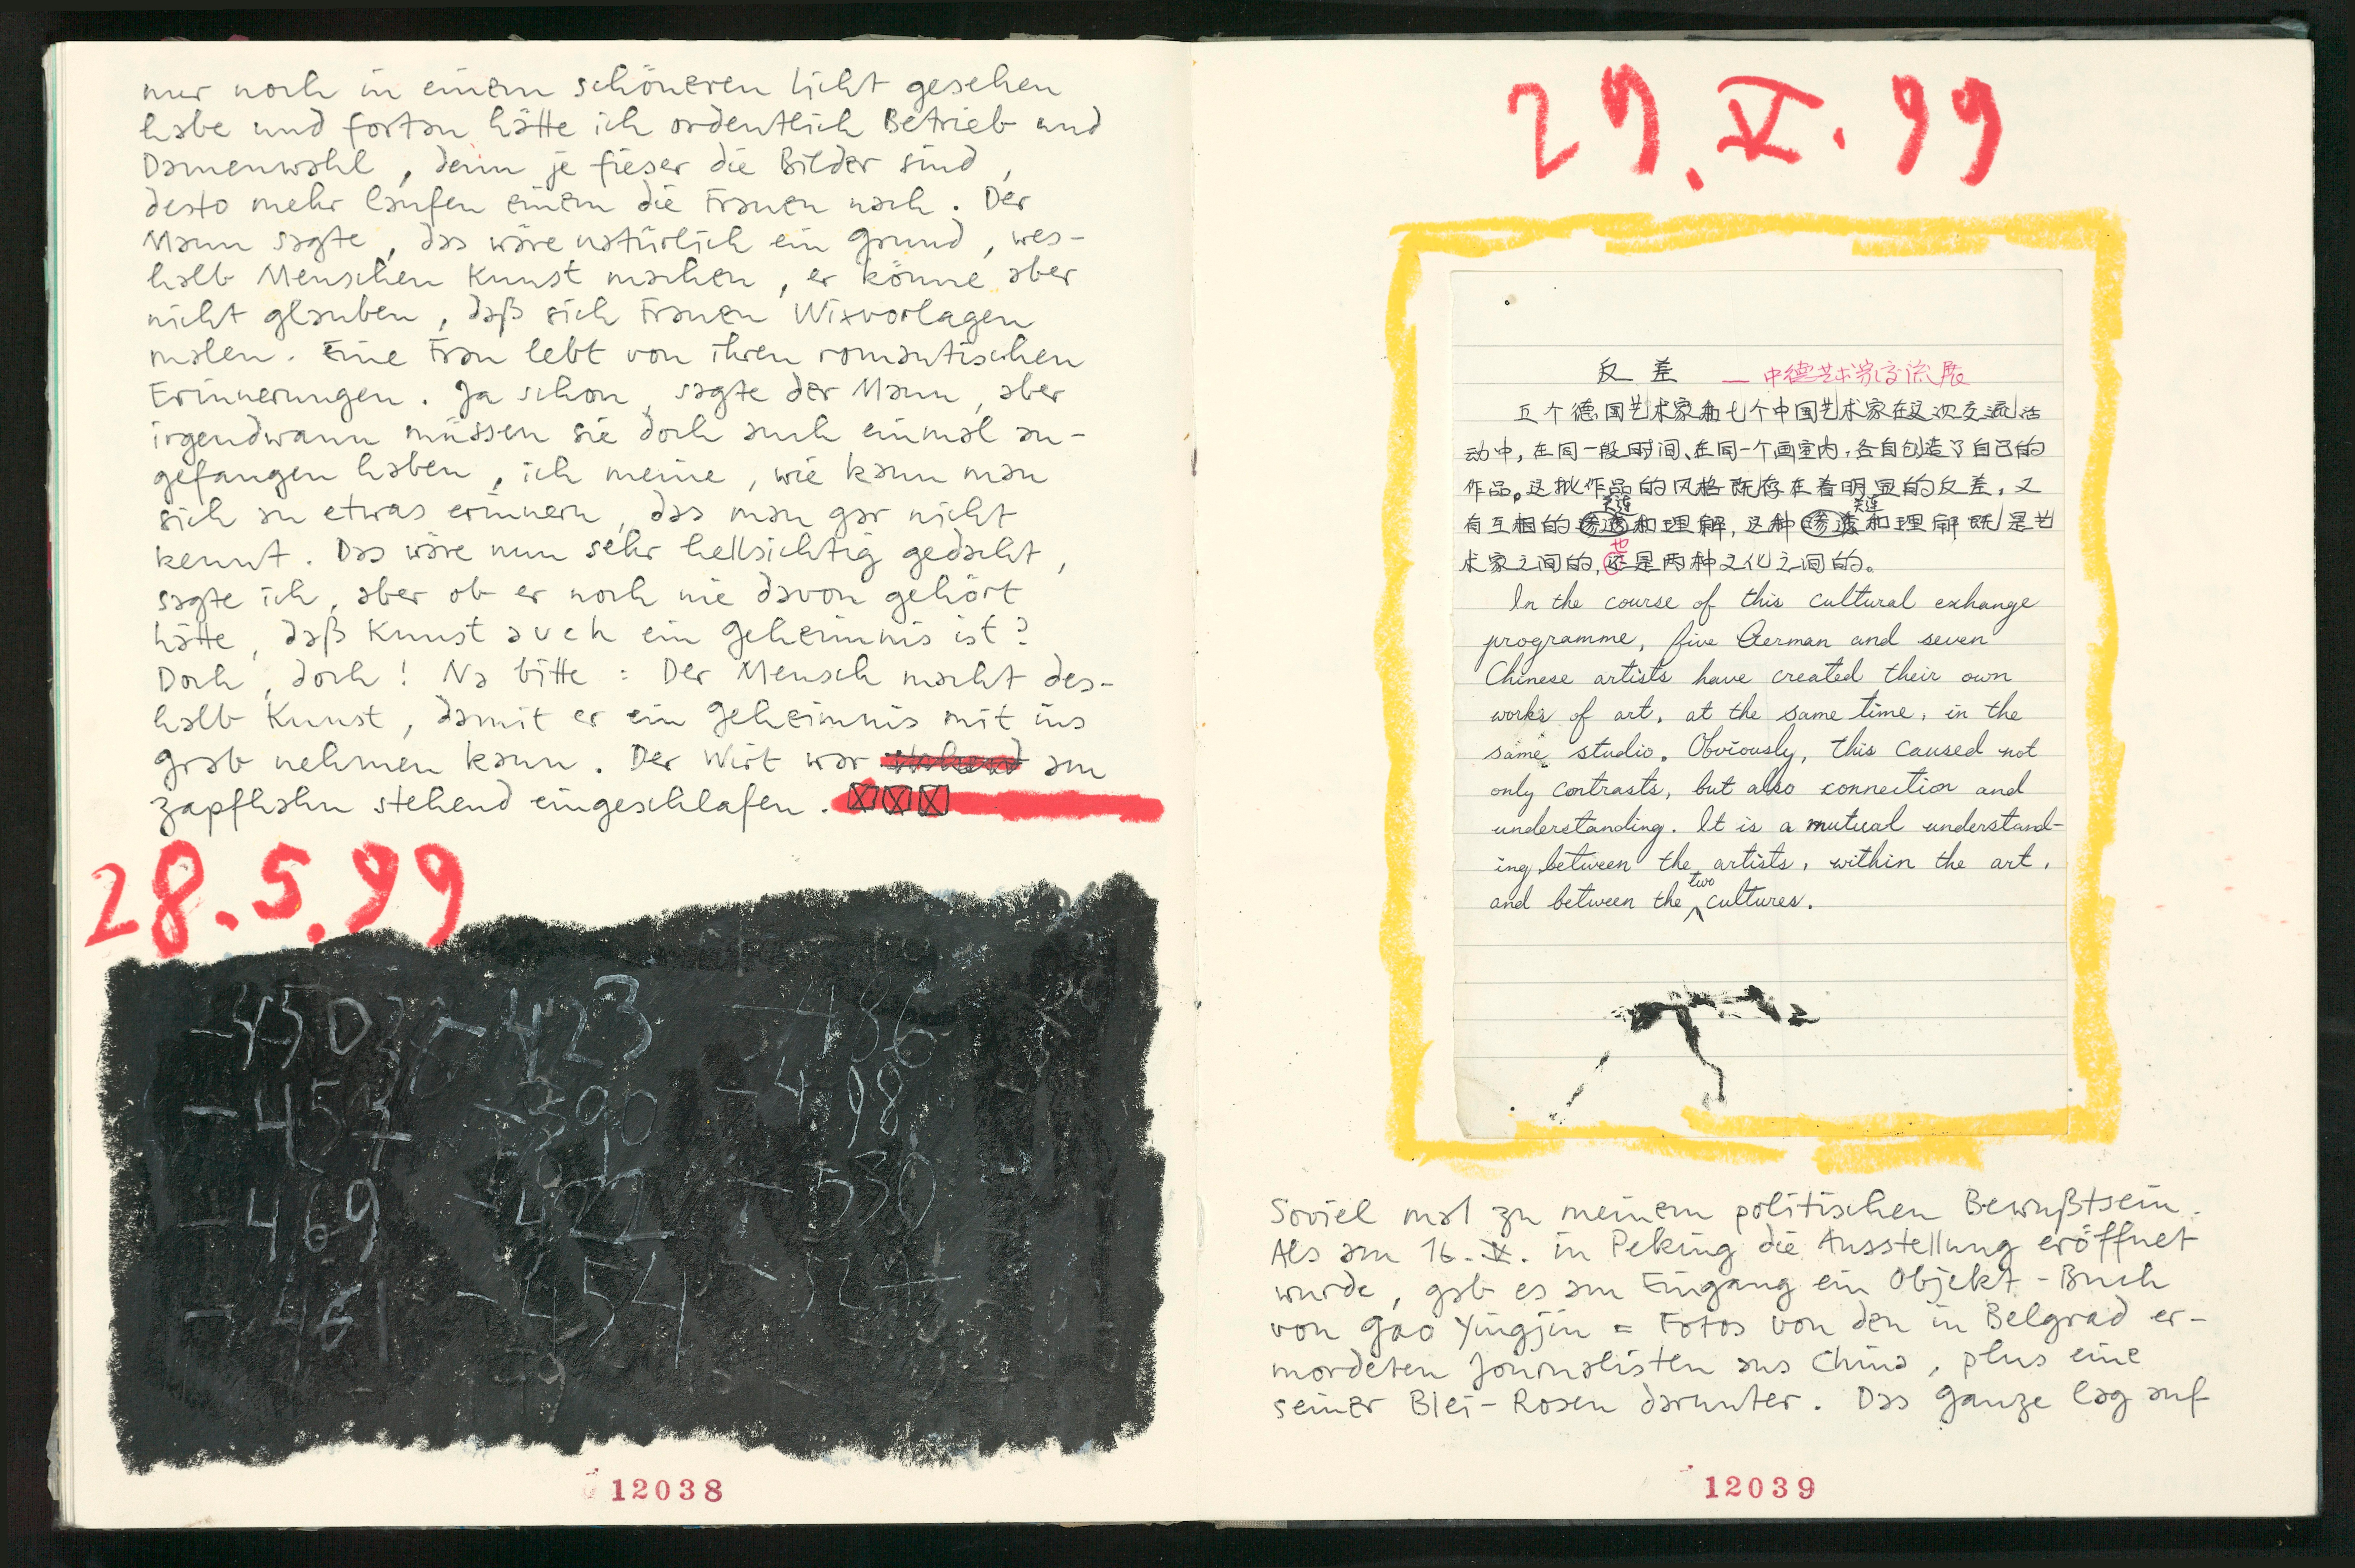 nur noch in einem schöneren Licht gesehen
habe und fortan hätte ich ordentlich Betrieb und
Damenwahl, denn je fieser die Bilder sind,
desto mehr laufen einem die Frauen nach. Der
Mann sagte, das wäre natürlich ein Grund, wes-
halb Menschen Kunst machen, er könne aber
nicht glauben, daß sich Frauen Wixvorlagen
malen. Eine Frau lebt von ihren romantischen
Erinnerungen. Ja schon, sagte der Mann, aber
irgendwann müssen sie doch auch einmal an-
gefangen haben, ich meine, wie kann man
sich an etwas erinnern, das man gar nicht
kennt. Das wäre nun sehr hellsichtig gedacht,
sagte ich, aber ob er noch nie davon gehört
hätte, daß Kunst auch ein Geheimnis ist?
Doch, doch! Na bitte: Der Mensch macht des-
halb Kunst, damit er ein Geheimnis mit ins
Grab nehmen kann. Der Wirt war stehend am
Zapfhahn stehend eingeschlafen.
28.5.99
-450 -423 -436
-457 -390 -498
-469 -422 -530
-461 -454 -527
12038
29.V.99
反差 — 中德艺术家交流展
五个德国艺术家和七个中国艺术家在这次交流活
动中,在同一段时间、在同一个画室内,各自创造了自己的
作品。这批作品的风格既存在着明显的反差,又
关连 关连
有互相的渗透和理解,这种渗透和理解既是艺
也
术家之间的,还是两种文化之间的。
In the course of this cultural exhange
programme, five German and seven
Chinese artists have created their own
works of art, at the same time, in the
same studio. Obviously, this caused not
only contrasts, but also connection and
understanding. It is a mutual understand-
ing between the artists, within the art,
two
and between the cultures.
Soviel mal zu meinem politischen Bewußtsein.
Als am 16.V. in Peking die Ausstellung eröffnet
wurde, gab es am Eingang ein Objekt-Buch
von Gao Yingjin = Fotos von den in Belgrad er-
mordeten Journalisten aus China, plus eine
seiner Blei-Rosen darunter. Das Ganze lag auf
12039